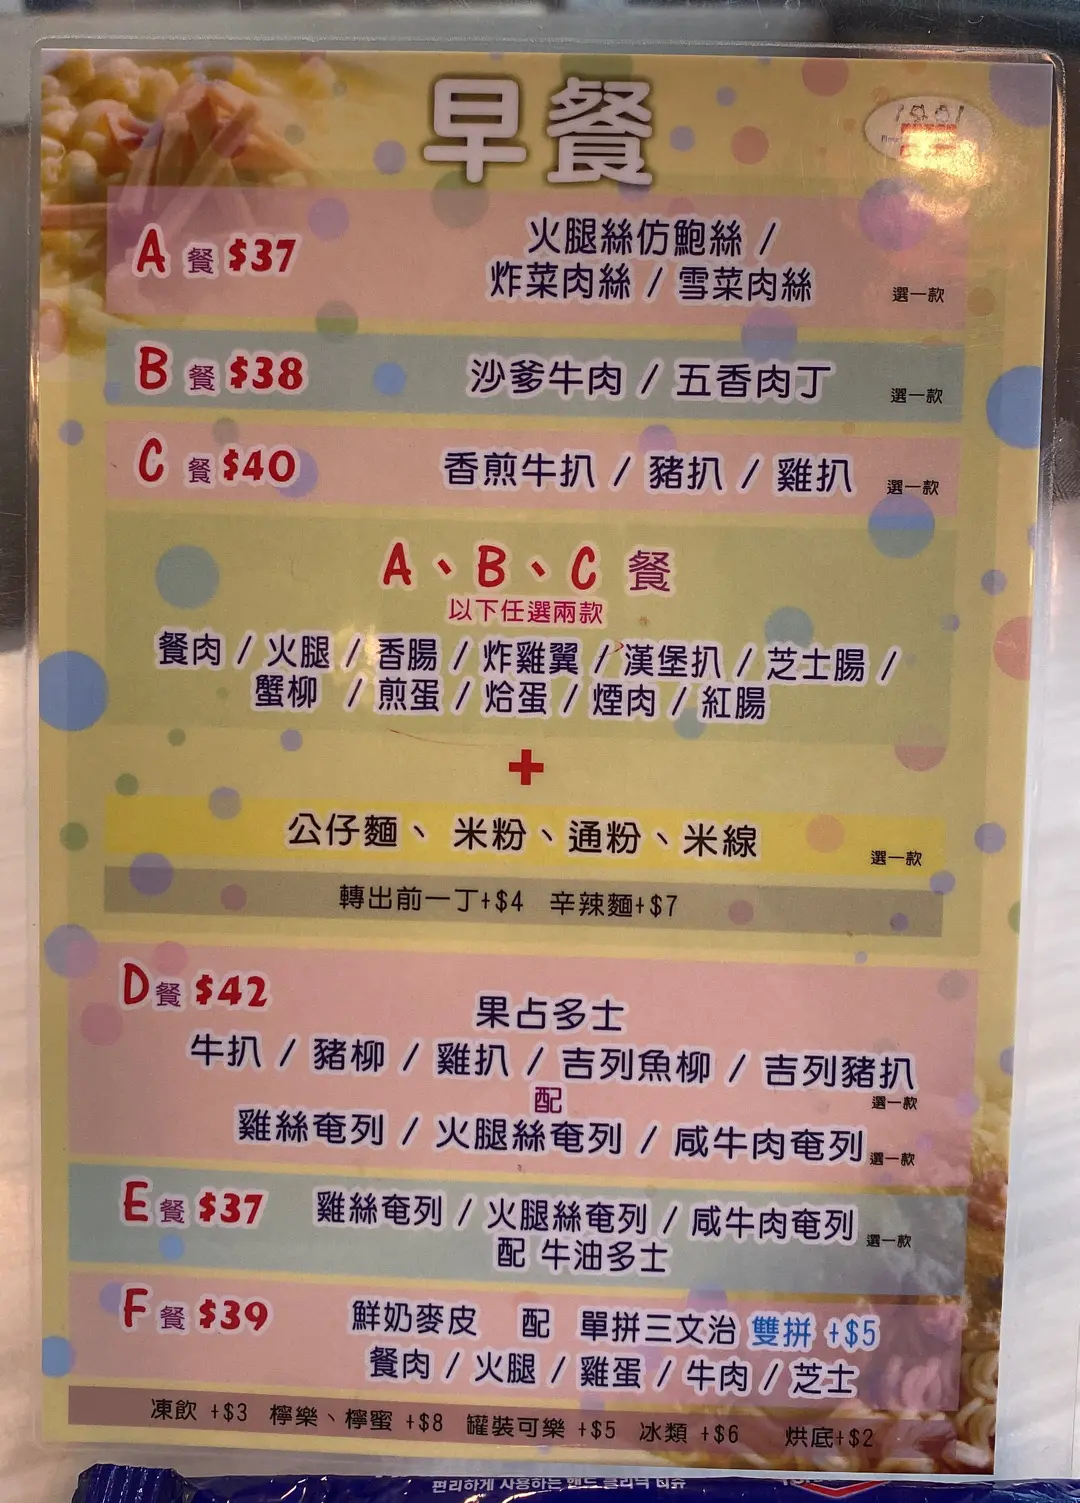 早餐
A 餐 $37
火腿絲仿鮑絲 /
炸菜肉絲 / 雪菜肉絲
選一款
B 餐 $38 沙爹牛肉 / 五香肉丁 選一款
C 餐 $40 香煎牛扒 / 豬扒 / 雞扒 選一款
A、B、C 餐
以下任選兩款
餐肉 / 火腿 / 香腸 / 炸雞翼 / 漢堡扒 / 芝士腸 /
蟹柳 / 煎蛋 / 烚蛋 / 煙肉 / 紅腸
+
公仔麵、 米粉、通粉、米線 選一款
轉出前一丁+$4 辛辣麵+$7
D餐 $42
果占多士
牛扒 / 豬柳 / 雞扒 / 吉列魚柳 / 吉列豬扒
選一款
配
雞絲奄列 / 火腿絲奄列 / 咸牛肉奄列 選一款
E 餐 $37 雞絲奄列 / 火腿絲奄列 / 咸牛肉奄列 選一款
配 牛油多士
F 餐 $39 鮮奶麥皮 配 單拼三文治 雙拼 +$5
餐肉 / 火腿 / 雞蛋 / 牛肉 / 芝士
凍飲 +$3 檸樂、檸蜜 +$8 罐裝可樂 +$5 冰類 +$6 烘底+$2
편리하게 사용하는 핸드 클리닉 티슈